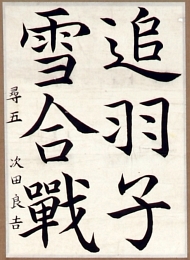 追羽子
雪合戰
尋五　次田良吉